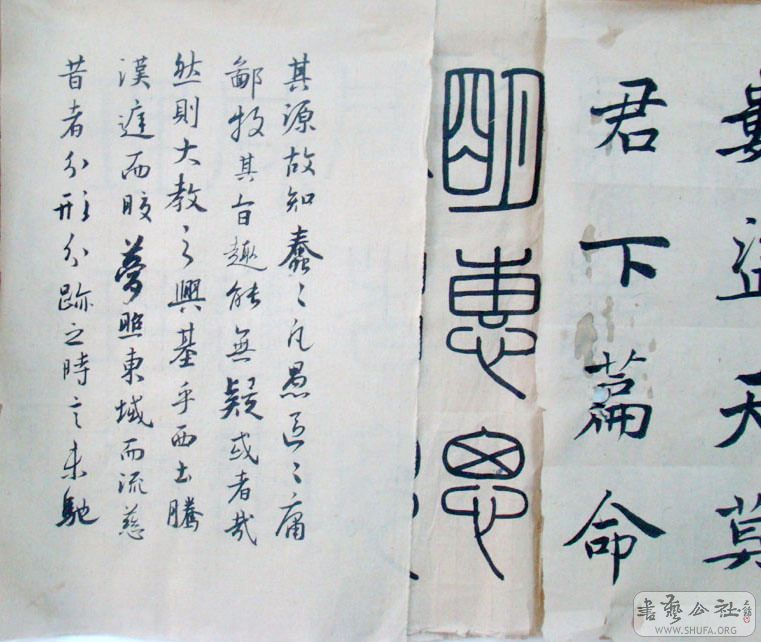 天
君下篇命
明惠思
其源故知蠢〻凡愚區〻庸
鄙投其旨趣能無疑或者哉
然則大教之興基乎西土騰
漢庭而皎夢照東域而流慈
昔者分形分跡之時言未馳
書藝公社
WWW.SHUFA.ORG